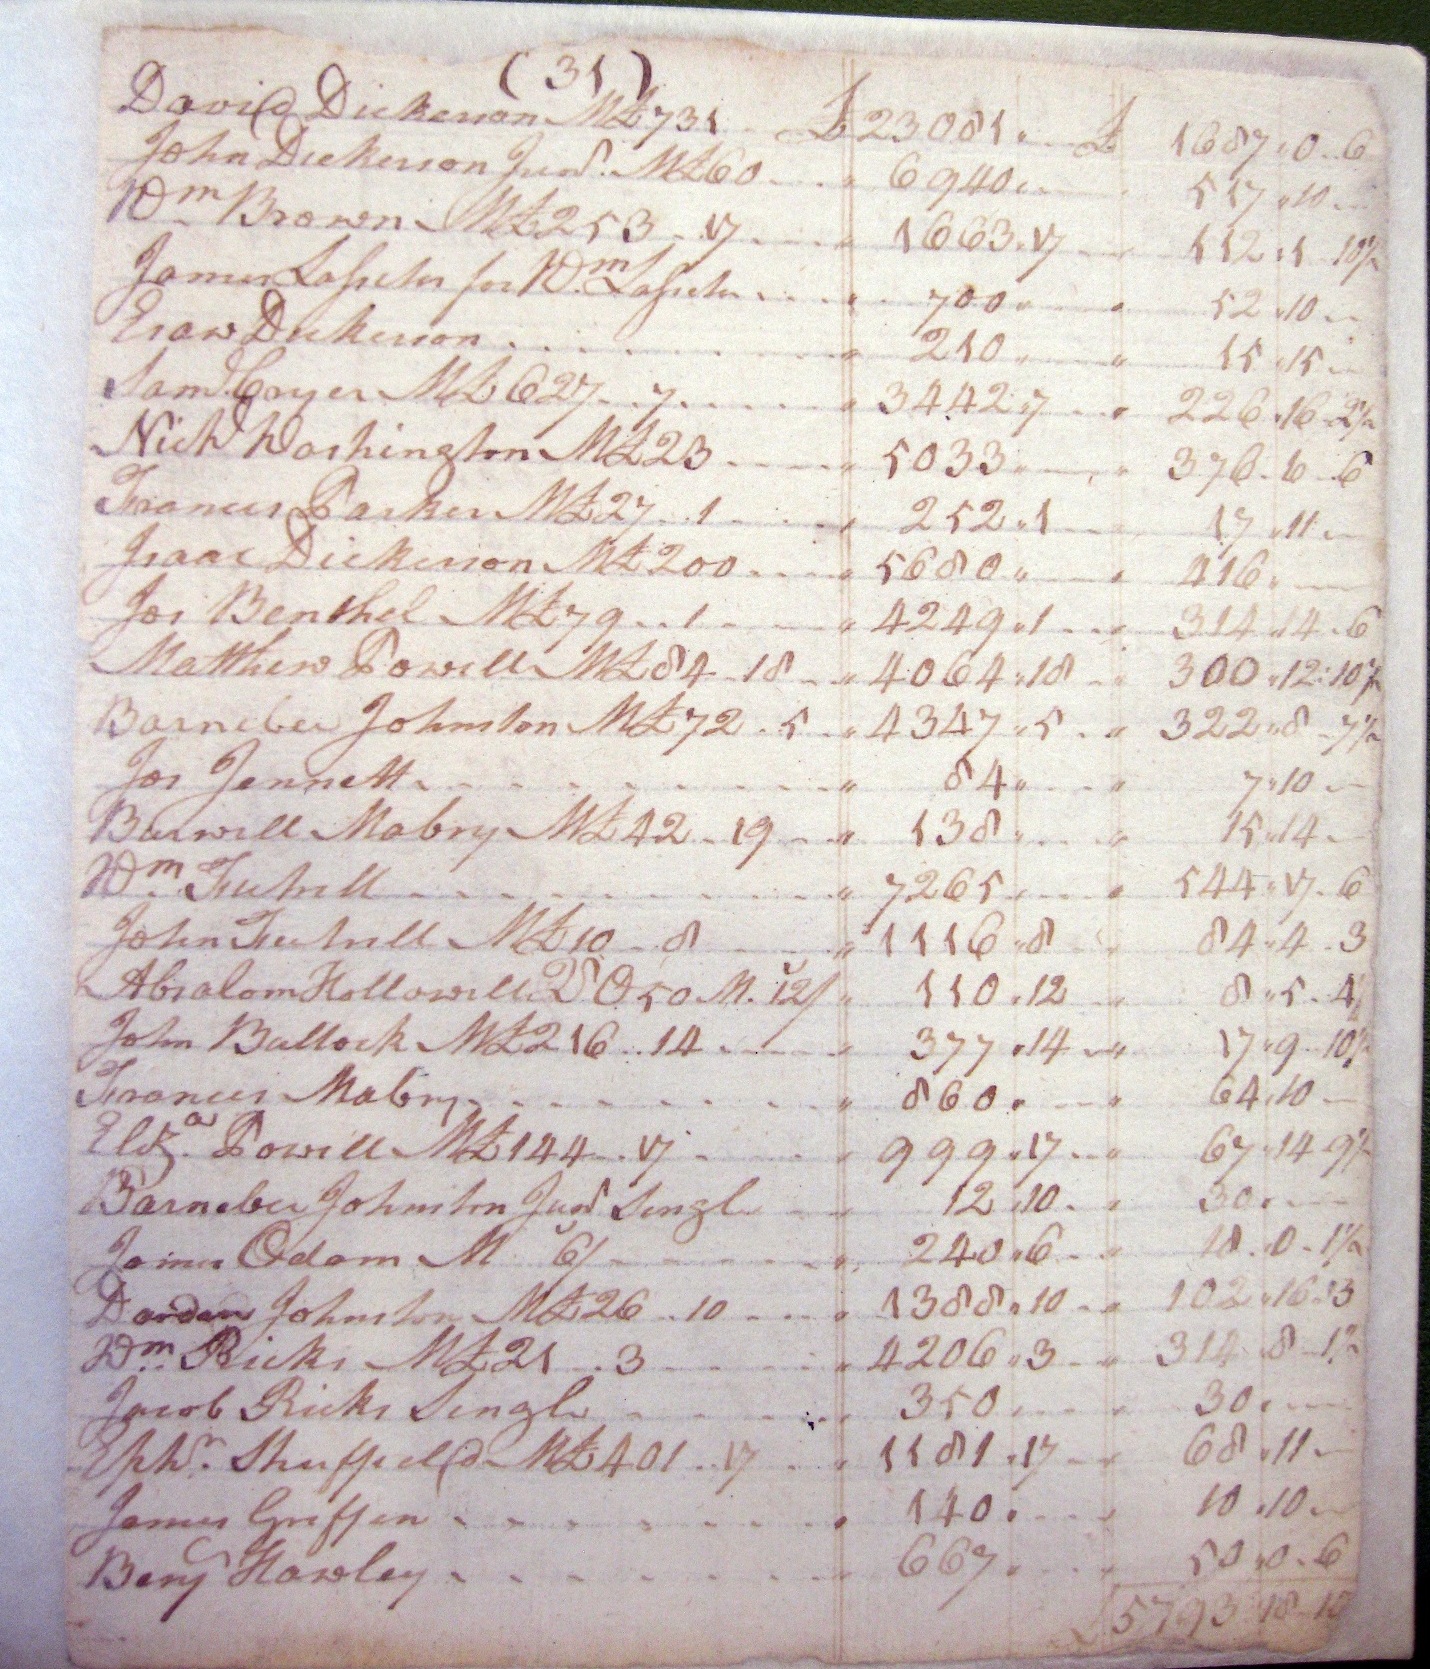 ( 31 )
David Dickerson M£731 £ 23081 „ £ 1687 „ 0 .. 6
John Dickerson Junr. M£60 „ 6940 „ 517 „ 10
Wm Brown M£253 .. 17 „ 1663 „ 17 112 „ 1 10½
James Lassiter for Wm. Lassiter „ 700 „ „ 52 „ 10
Esaw Dickerson „ 210 „ „ 15 „ 15
Saml. Coryer M£627 .. 7 „ 3442 „ 7 „ 226 „ 16 2½
Nichs Washington M£23 „ 5033 „ „ 376 .. 6 .. 6
Francis Parker M£27 .. 1 „ 252 „ 1 17 „ 11
Isaac Dickerson M£200 „ 5680 „ „ 416 „
Jos Benthel M£79 .. 1 „ 4249 „ 1 „ 314 „ 14 .. 6
Matthew Powell M£84 .. 18 „ 4064 „ 18 „ 300 „ 12 „ 10½
Barnebee Johnston M£72 .. 5 „ 4347 „ 5 „ 322 „ 8 .. 7½
Jos Jennett „ 84 „ „ 7 „ 10
Burwell Mabry M£42 .. 19 „ 138 „ „ 15 „ 14
Wm. Futrell „ 7265 „ 544 „ 17 .. 6
John Futrell M£10 .. 8 „ 1116 „ 8 84 „ 4 .. 3
Absalom Hollowell 50 M. 12/ „ 110 „ 12 „ 8 „ 5 .. 4
John Bullock M£216 .. 14 „ 377 „ 14 „ 17 „ 9 .. 10½
Francis Mabry „ 860 „ „ 64 „ 10
Eliza. Powell M£144 .. 17 „ 999 „ 17 „ 67 „ 14 9½
Barnebee Johnston Junr Single „ 12 „ 10 „ 30 „
James Odom M 6/ „ 240 „ 6 „ 18 .. 0 .. 1½
Dordan Johnston M£26 .. 10 „ 1388 „ 10 „ 102 „ 16 „ 3
Wm. Ricks M£21 .. 3 „ 4206 „ 3 „ 314 „ 8 .. 1½
Jacob Ricks Single 350 30 „
Ephr. Sheffield M£401 .. 17 „ 1181 „ 17 „ 68 „ 11
James Griffin „ 140 „ 10 „ 10
Benj Hawley „ 667 „ 50 „ 0 .. 6
£5793 18 10